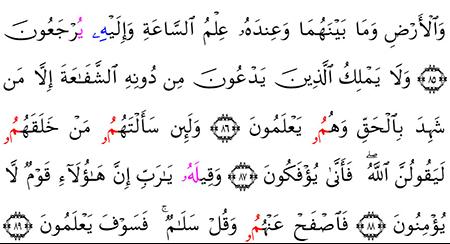 وَالْأَرْضِ وَمَا بَيْنَهُمَا وَعِندَهُۥ عِلْمُ السَّاعَةِ وَإِلَيْهِۦ يُرْجَعُونَ
٨٥ وَلَا يَمْلِكُ الَّذِينَ يَدْعُونَ مِن دُونِهِ الشَّفَاعَةَ إِلَّا مَن
شَهِدَ بِالْحَقِّ وَهُمُۥ يَعْلَمُونَ ٨٦ وَلَئِن سَأَلْتَهُمُۥ مَنْ خَلَقَهُمُۥ
لَيَقُولُنَّ اللَّهُۖ فَأَنَّىٰ يُؤْفَكُونَ ٨٧ وَقِيلَهُۥ يَٰرَبِّ إِنَّ هَٰؤُلَآءِ قَوْمٌ لَّا
يُؤْمِنُونَ ٨٨ فَاصْفَحْ عَنْهُمُۥ وَقُلْ سَلَٰمٌۚ فَسَوْفَ يَعْلَمُونَ ٨٩